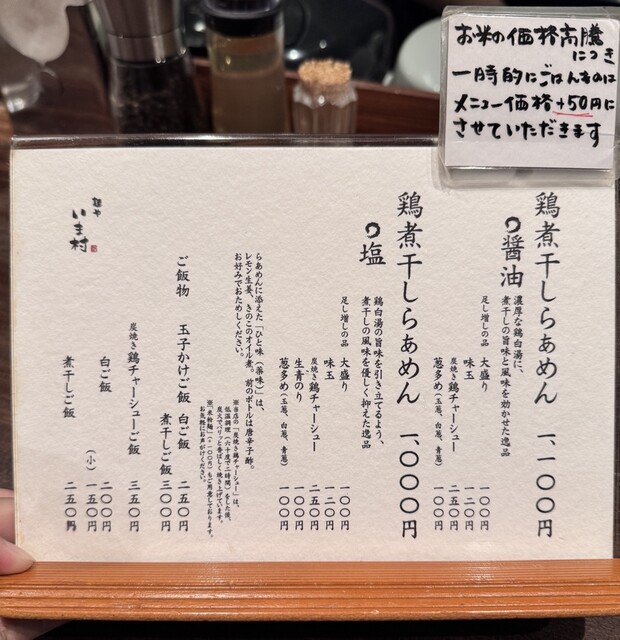 お米の価格高騰
につき
一時的にごはんものは
メニュー価格+50円に
させていただきます
鶏煮干しらあめん 一、一〇〇円
醤油
濃厚な鶏白湯に、
煮干しの旨味と風味を効かせた逸品
足し増しの品 大盛り 一〇〇円
味玉 一二〇円
炭焼き鶏チャーシュー 二五〇円
葱多め(玉葱、白葱、青葱) 一〇〇円
鶏煮干しらあめん 一、〇〇〇円
塩
鶏白湯の旨味を引き立てるよう、
煮干しの風味を優しく抑えた逸品
足し増しの品 大盛り 一〇〇円
味玉 一二〇円
炭焼き鶏チャーシュー 二五〇円
生青のり 一〇〇円
葱多め(玉葱、白葱、青葱) 一〇〇円
らあめんに添えた「ひと味(薬味)」は、
レモン生姜、きのこのオイル煮。前のボトルは唐辛子酢。
お好みでおためしください。
※当店の「炭焼き鶏チャーシュー」は、
低温調理(六十度で二時間)をした後、
炭火でパリッと香ばしく焼き上げています。
お気軽にお声がけください。
ご飯物 玉子かけご飯 白ご飯 二五〇円
煮干しご飯 三〇〇円
炭焼き鶏チャーシューご飯 三五〇円
白ご飯 (小) 一五〇円
煮干しご飯 二五〇円
麺や
いま村